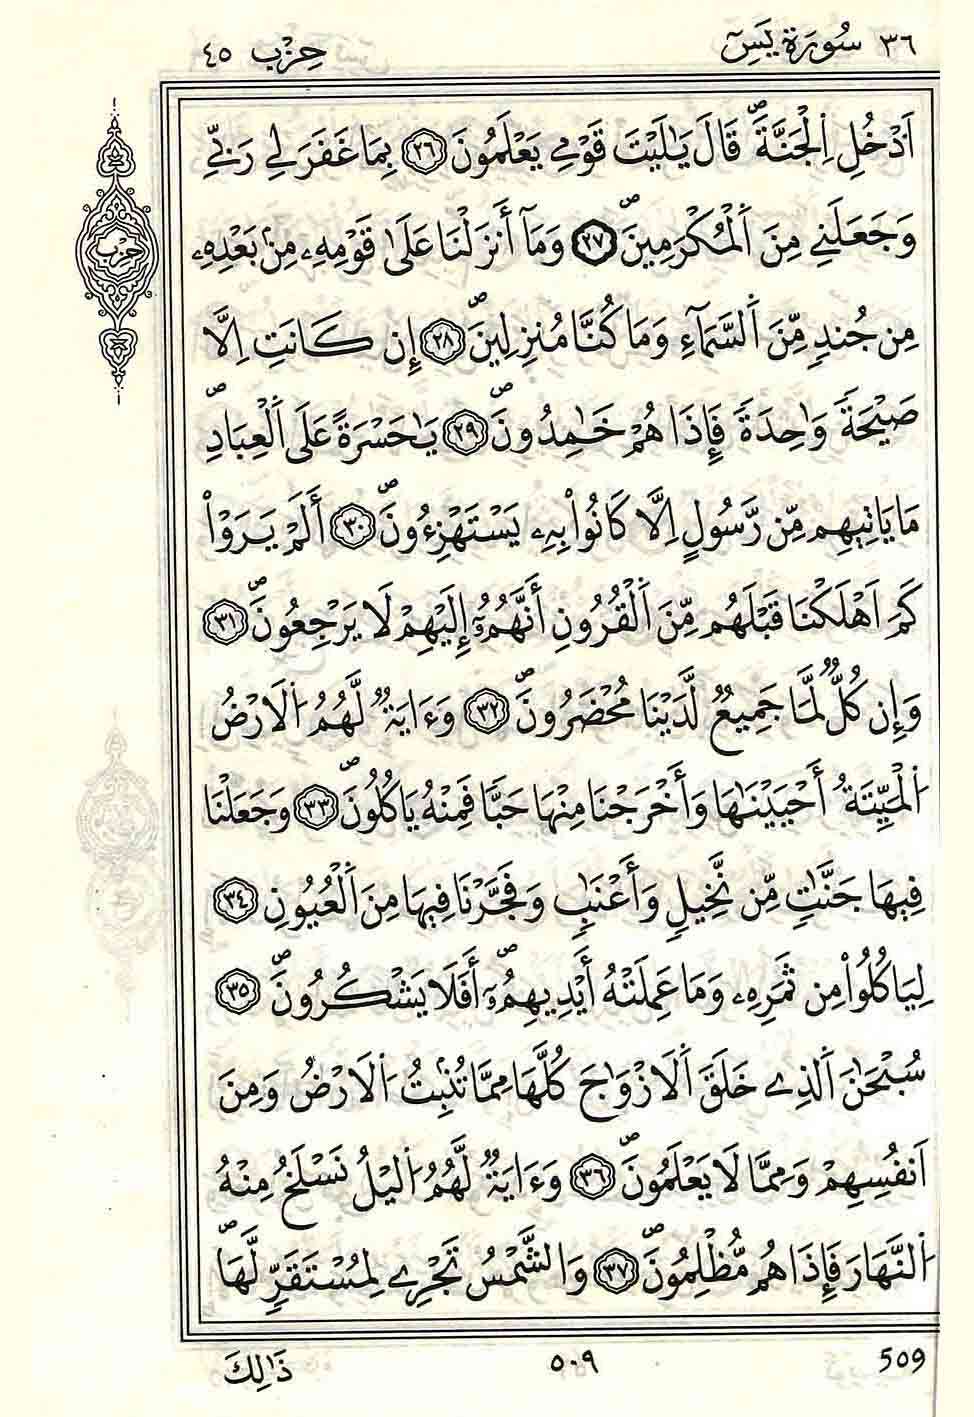 ٣٦ سُورَةُ يَسِٓ حِزْب ٤٥
اَدْخُلِ اِ۬لْجَنَّةَۖ قَالَ يَٰلَيْتَ قَوْمِے يَعْلَمُونَ ٢٦ بِمَا غَفَرَ لِے رَبِّے
وَجَعَلَنِے مِنَ اَ۬لْمُكْرَمِينَۖ ٢٧ وَمَآ أَنزَلْنَا عَلَىٰ قَوْمِهِۦ مِنۢ بَعْدِهِۦ
مِن جُندٖ مِّنَ اَ۬لسَّمَآءِ وَمَا كُنَّا مُنزِلِينَۖ ٢٨ إِن كَانَتِ اِلَّا
صَيْحَةٗ وَٰحِدَةٗ فَإِذَا هُمْ خَٰمِدُونَۖ ٢٩ يَٰحَسْرَةً عَلَى اَ۬لْعِبَادِۖ
مَا يَاتِيهِم مِّن رَّسُولٍ اِلَّا كَانُواْ بِهِۦ يَسْتَهْزِءُونَۖ ٣٠ أَلَمْ يَرَوْاْ
كَمَ اَهْلَكْنَا قَبْلَهُم مِّنَ اَ۬لْقُرُونِ أَنَّهُمُۥٓ إِلَيْهِمْ لَا يَرْجِعُونَۖ ٣١
وَإِن كُلّٞ لَّمَا جَمِيعٞ لَّدَيْنَا مُحْضَرُونَۖ ٣٢ وَءَايَةٞ لَّهُمُ اُ۬لَارْضُ
اُ۬لْمَيِّتَةُ أَحْيَيْنَٰهَا وَأَخْرَجْنَا مِنْهَا حَبّاٗ فَمِنْهُ يَاكُلُونَۖ ٣٣ وَجَعَلْنَا
فِيهَا جَنَّٰتٖ مِّن نَّخِيلٖ وَأَعْنَٰبٖ وَفَجَّرْنَا فِيهَا مِنَ اَ۬لْعُيُونِ ٣٤
لِيَاكُلُواْ مِن ثَمَرِهِۦ وَمَا عَمِلَتْهُ أَيْدِيهِمُۥٓۖ أَفَلَا يَشْكُرُونَۖ ٣٥
سُبْحَٰنَ اَ۬لذِے خَلَقَ اَ۬لَازْوَٰجَ كُلَّهَا مِمَّا تُنۢبِتُ اُ۬لَارْضُ وَمِنَ
اَنفُسِهِمْ وَمِمَّا لَا يَعْلَمُونَۖ ٣٦ وَءَايَةٞ لَّهُمُ اُ۬ليْلُ نَسْلَخُ مِنْهُ
اُ۬لنَّهَارَ فَإِذَا هُم مُّظْلِمُونَۖ ٣٧ وَالشَّمْسُ تَجْرِے لِمُسْتَقَرّٖ لَّهَاۖ
509 ٥٠٩ ذَٰلِكَ
حزب